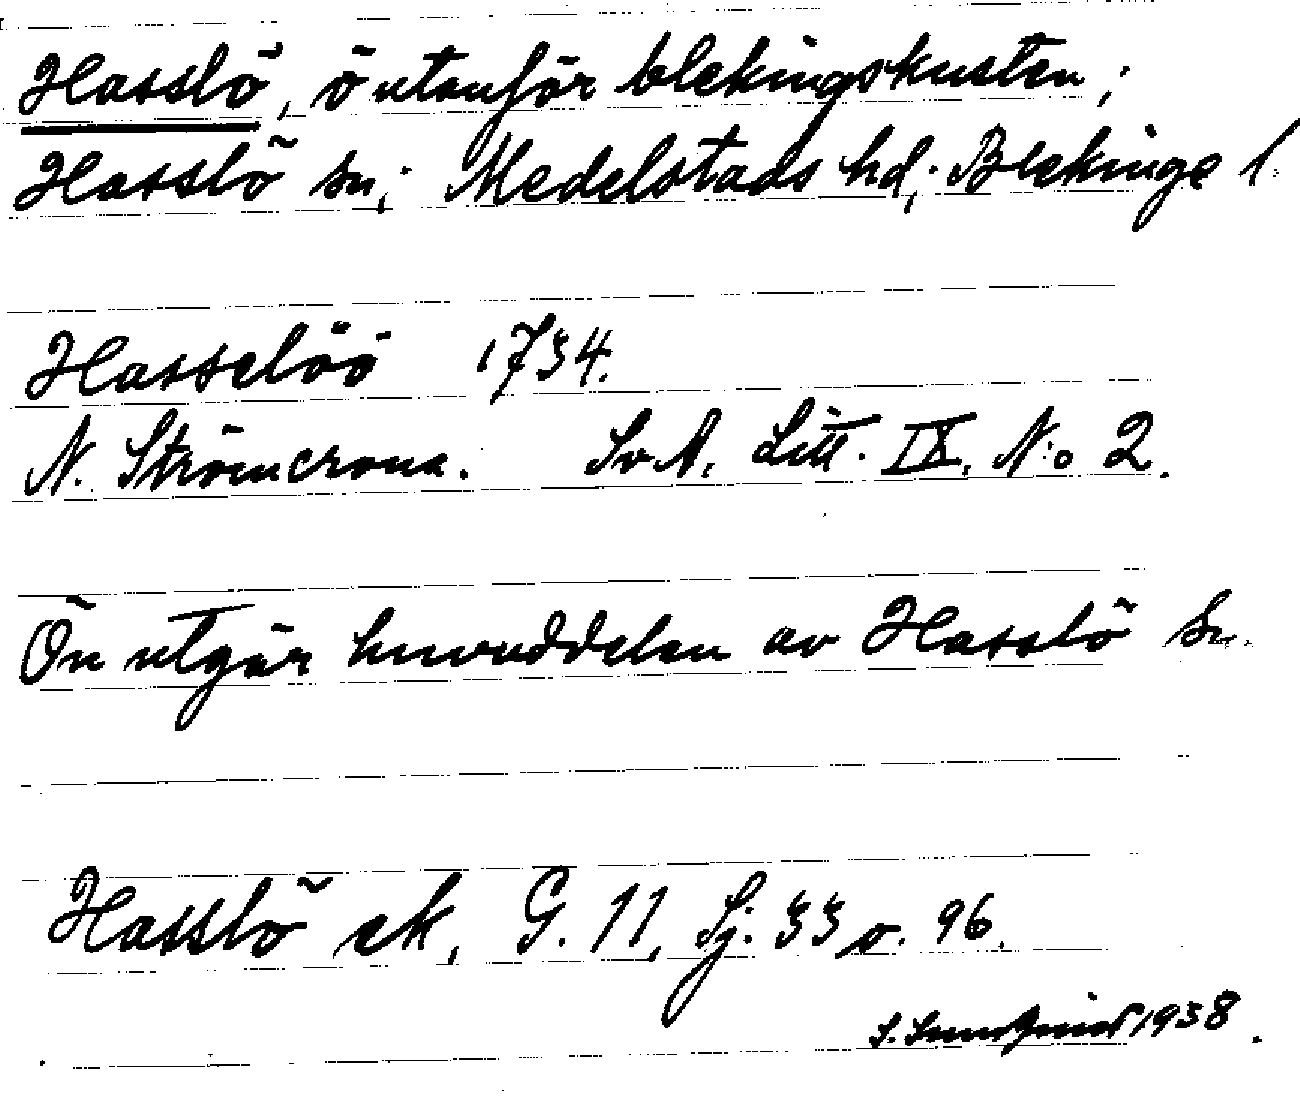 Hasslö, ö utanför blekingskusten;
Hasslö sn; Medelstads hd; Blekinge l.
Hasselöö 1734.
N. Strömcrona. SvA, Litt. IX, N:o 2.
Ön utgör huvuddelen av Hasslö sn.
Hasslö ek, G. 11, Sj. 33 o. 96.
S. 1938.